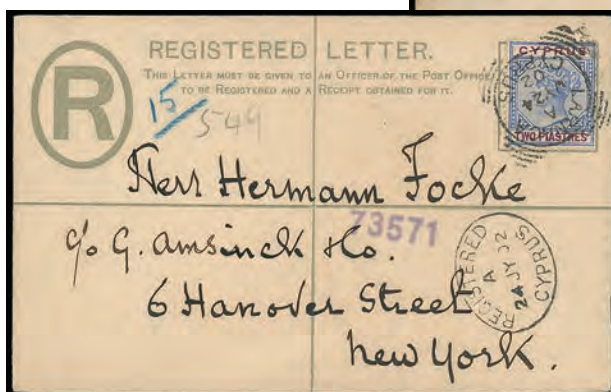 REGISTERED LETTER.
THIS LETTER MUST BE GIVEN TO AN OFFICER OF THE POST OFFICE
TO BE REGISTERED AND A RECEIPT OBTAINED FOR IT.
R
CYPRUS
TWO PIASTRES
LARNACA
CYPRUS
15
549
Herr Hermann Focke
c/o G. Amsinck & Co.
73571
6 Hanover Street
New York.
REGISTERED
A
24 JY 02
CYPRUS